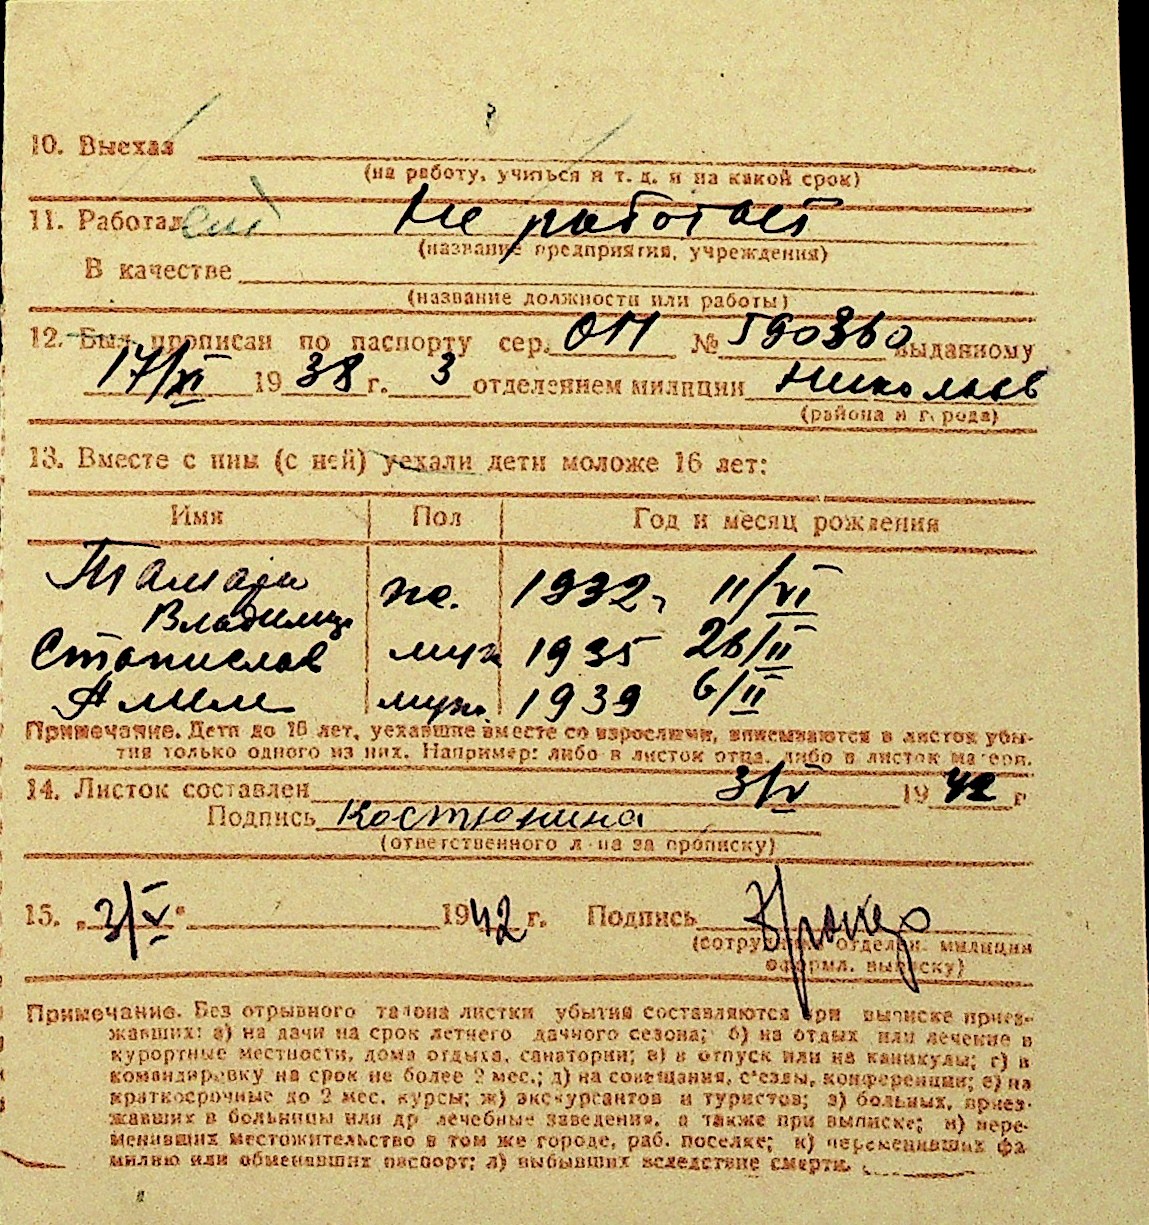 10. Выехал
(на работу, учиться и т. д. и на какой срок)
11. Работал Не работает
(название предприятия, учреждения)
В качестве
(название должности или работы)
12. Был прописан по паспорту сер. ОП № 590360 выданному
17/XI 1938 г. 3 отделением милиции Николаев
(района и города)
13. Вместе с ним (с ней) уехали дети моложе 16 лет:
Имя Пол Год и месяц рождения
Тамара ж. 1932 11/VI
Владимир
Станислав муж 1935 26/II
муж. 1939 6/II
Примечание. Дети до 16 лет, уехавшие вместе со взрослыми, вписываются в листок убы-
тия только одного из них. Например: либо в листок отца, либо в листок матери.
14. Листок составлен 3/V 1942 г
Подпись Костюнина
(ответственного л-ца за прописку)
15. „3/V" 1942 г. Подпись
(сотрудник отделен. милиции
оформл. выписку)
Примечание. Без отрывного талона листки убытия составляются при выписке приез-
жавших: а) на дачи на срок летнего дачного сезона; б) на отдых или лечение в
курортные местности, дома отдыха, санатории; в) в отпуск или на каникулы; г) в
командировку на срок не более 2 мес.; д) на совещания, съезды, конференции; е) на
краткосрочные до 2 мес. курсы; ж) экскурсантов и туристов; з) больных, приез-
жавших в больницы или др лечебные заведения, а также при выписке; и) пере-
менивших местожительство в том же городе, раб. поселке; к) переменивших фа-
милию или обменявших паспорт; л) выбывших вследствие смерти.